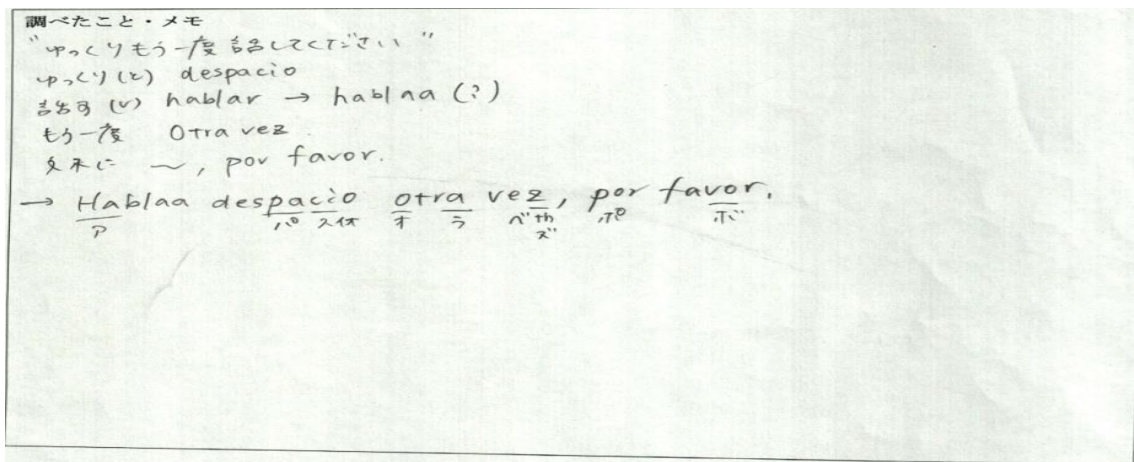 調べたこと・メモ
"ゆっくりもう一度話してください"
ゆっくり(と) despacio
話す (v) hablar → hablaa (?)
もう一度 Otra vez
文末に 〜, por favor.
→ Hablaa despacio otra vez, por favor.
ア パ スィオ オ ラ ベ th ポ ボ
ズ